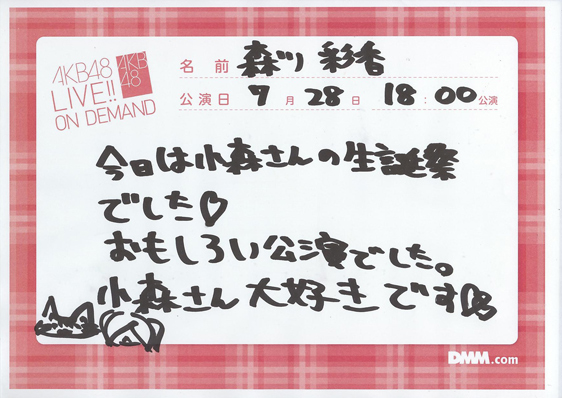 AKB48
LIVE!!
ON DEMAND
AKB
48
名 前 森川 彩香
公演日 7 月 28 日 18:00 公演
今日は小森さんの生誕祭
でした♡
おもしろい公演でした。
小森さん大好きです
DMM.com